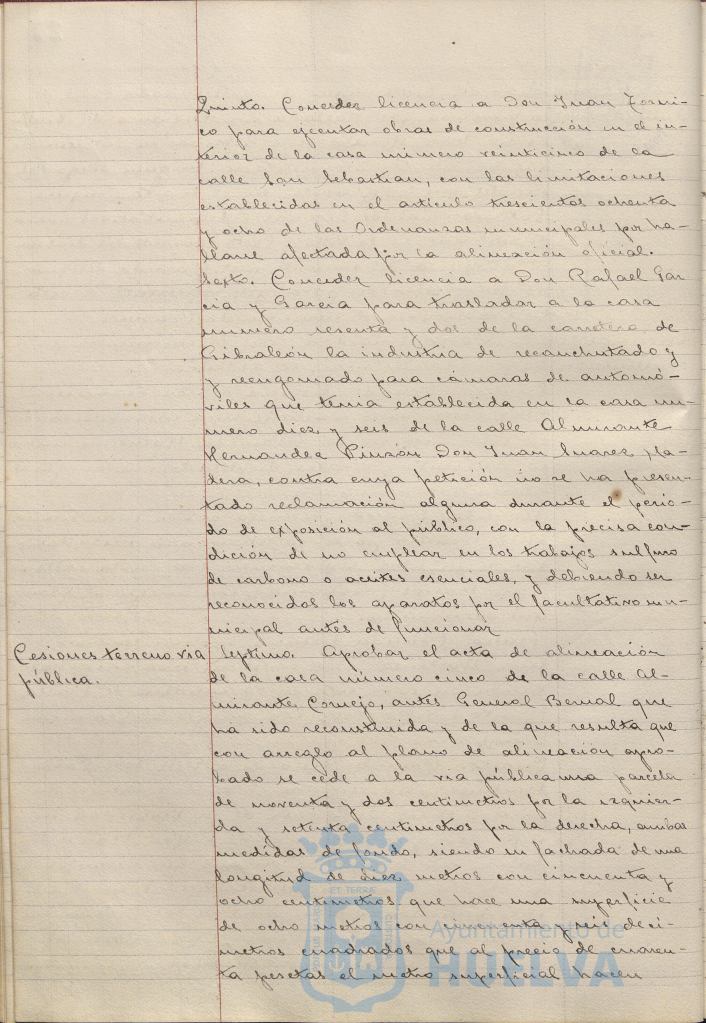 Quinto. Conceder licencia a Don Juan Forni-
co para ejecutar obras de construcción en el in-
terior de la casa número veinticinco de la
calle San Sebastian, con las limitaciones
establecidas en el artículo trescientos ochenta
y ocho de las Ordenanzas municipales por ha-
llarse afectada por la alineación oficial.
Sexto. Conceder licencia a Don Rafael Gar
cia y Garcia para trasladar a la casa
numero sesenta y dos de la carretera de
Gibraleón la industria de recauchutado y
y reengomado para cámaras de automó-
viles que tenia establecida en la casa nu-
mero diez y seis de la calle Almirante
Hernandez Pinzón Don Juan Suarez
contra cuya petición no se ha presen-
tado reclamación alguna durante el perio-
do de exposición al público, con la precisa con-
dición de no emplear en los trabajos sulfuro
de carbono o aceites esenciales, y debiendo ser
reconocidos los aparatos por el facultativo mu-
nicipal antes de funcionar
Cesiones terreno via
pública.
Septimo. Aprobar el acta de alineación
de la casa número cinco de la calle Al-
mirante Cornejo, antes General Bernal que
ha sido reconstruida y de la que resulta que
con arreglo al plano de alineación apro-
bado se cede a la via pública una parcela
de noventa y dos centimetros por la izquier-
da y setenta centimetros por la derecha, ambas
medidas de fondo, siendo su fachada de una
longitud de diez metros con cincuenta y
ocho centimetros que hace una superficie
de ocho metros con cincuenta y seis deci-
metros cuadrados que al precio de cuaren-
ta pesetas el metro superficial hacen
Ayuntamiento de
HUELVA